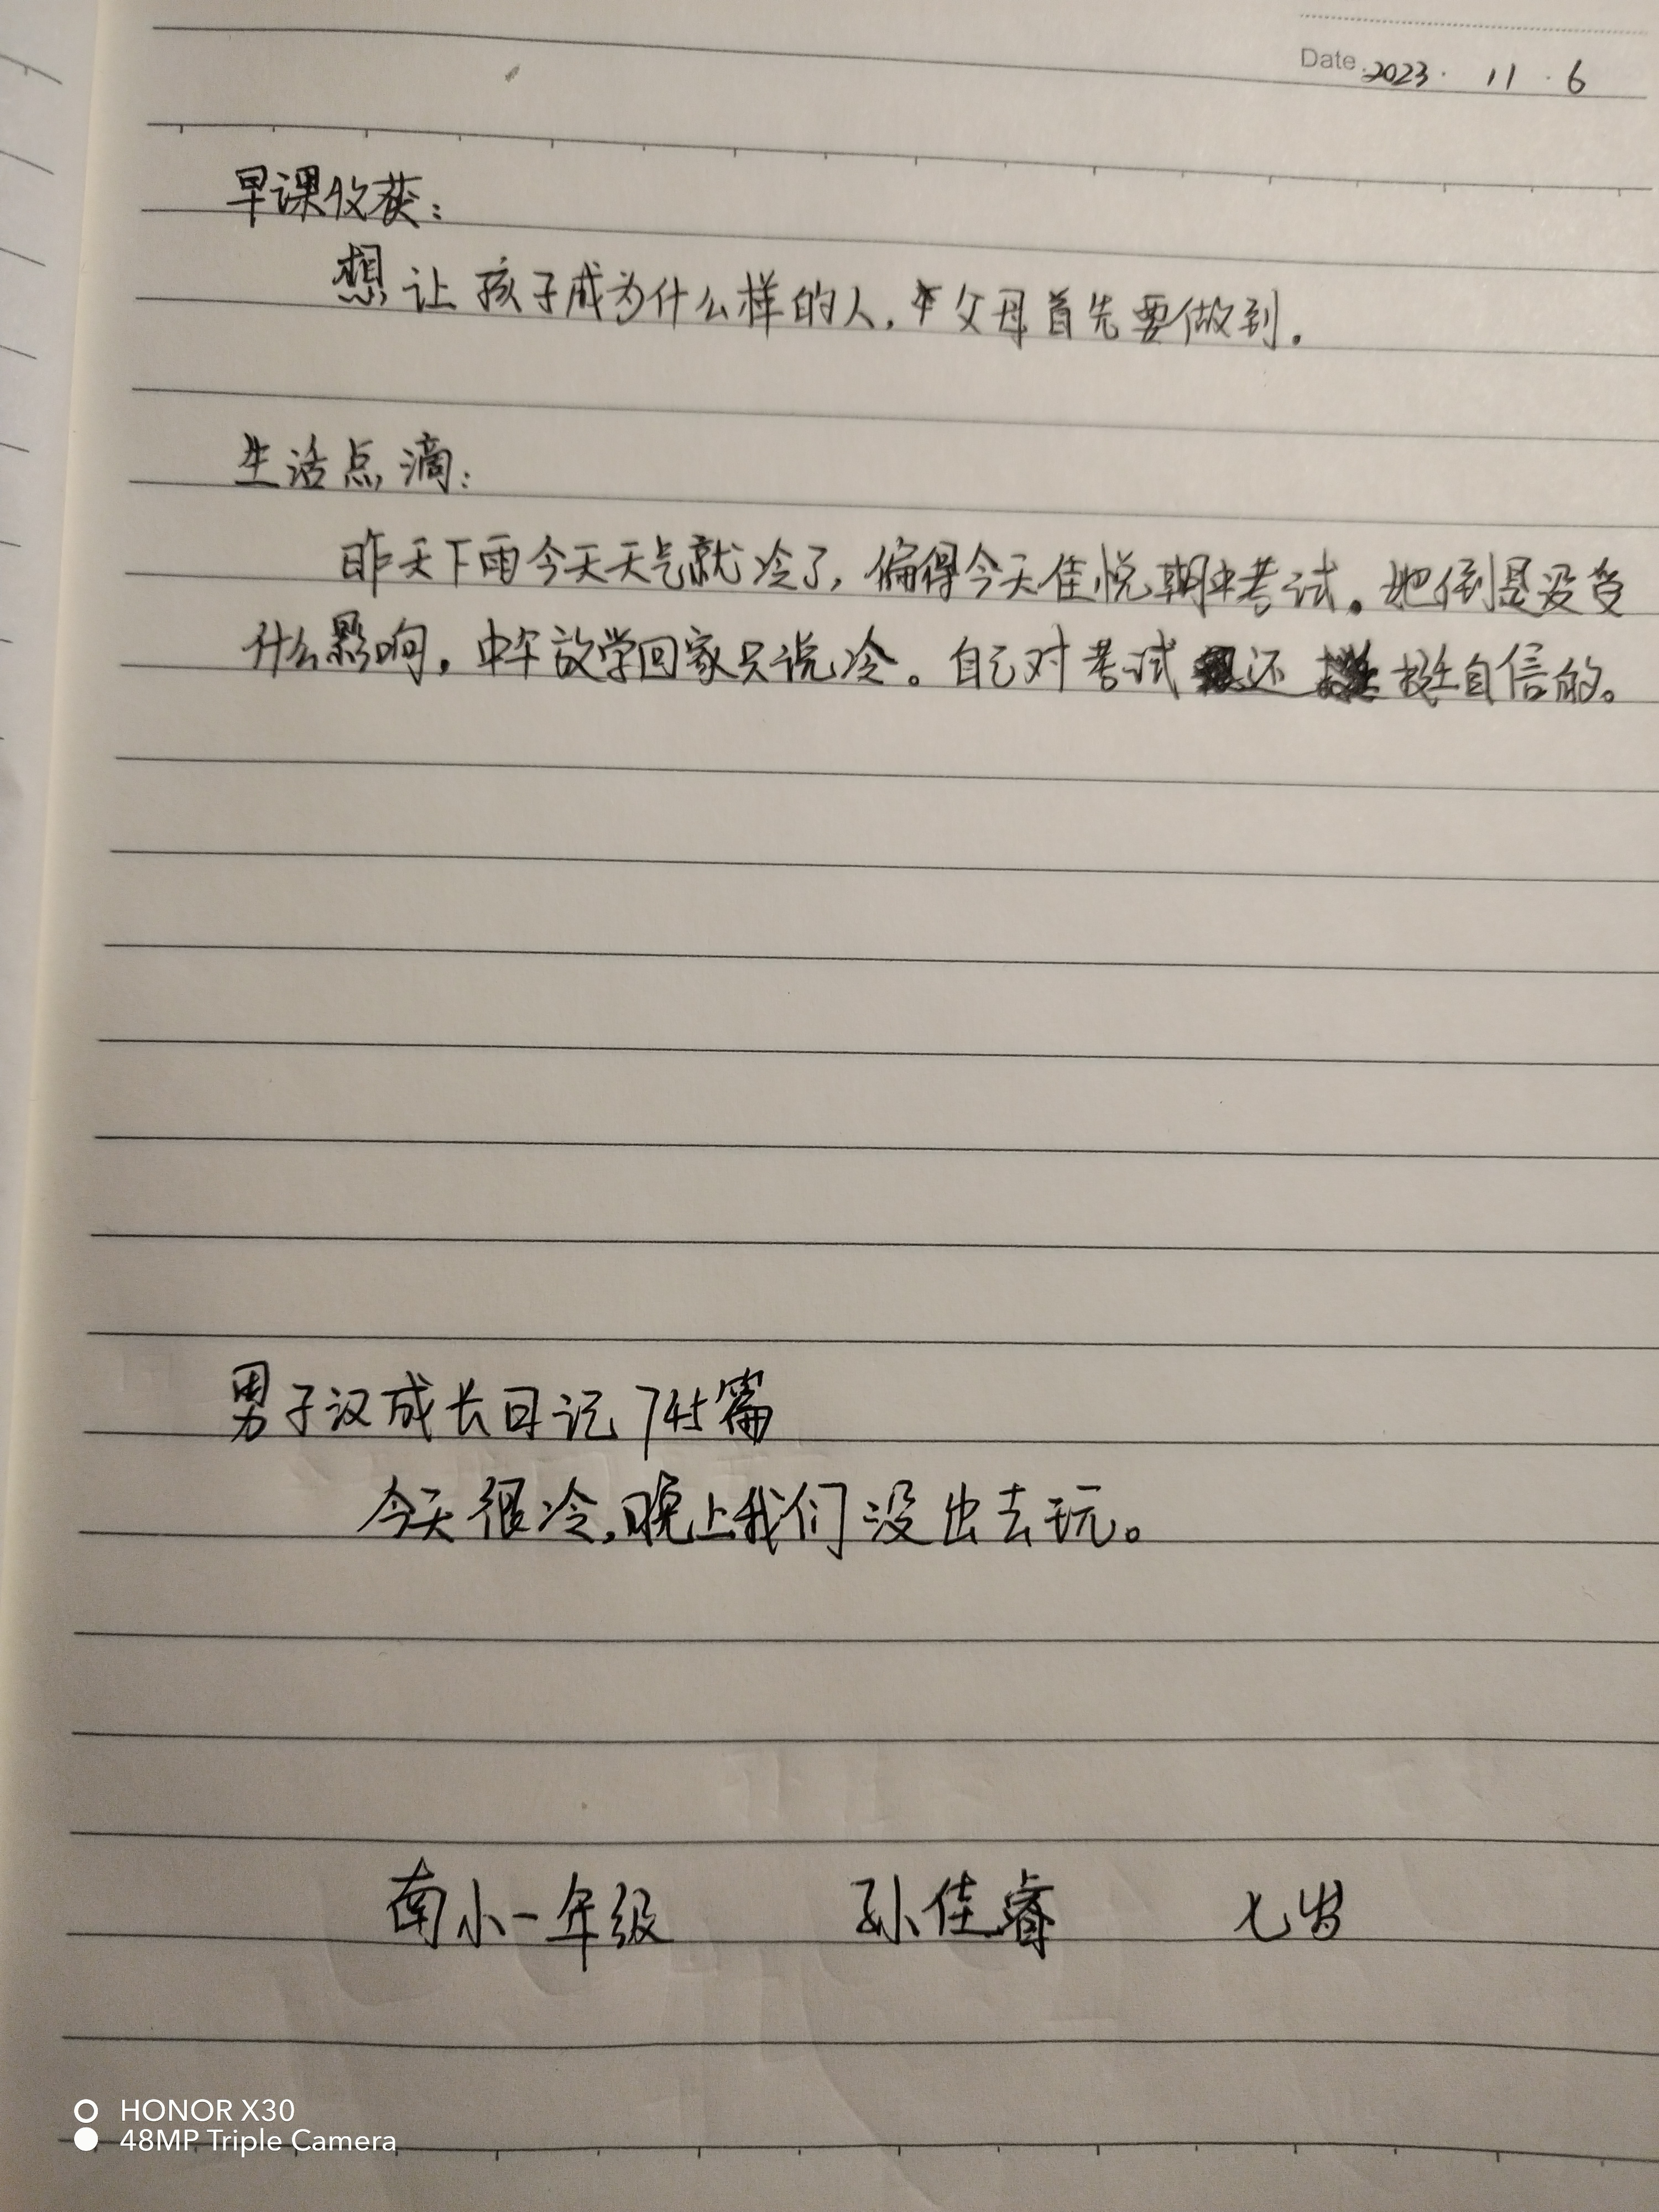 Date 2023. 11. 6
早课收获：
想让孩子成为什么样的人，父母首先要做到。
生活点滴：
昨天下雨今天天气就冷了，偏得今天佳悦期中考试。她倒是没受
什么影响，中午放学回家只说冷。自己对考试还挺自信的。
男子汉成长日记745篇
今天很冷，晚上我们没出去玩。
南小一年级 孙佳睿 七岁
HONOR X30
48MP Triple Camera